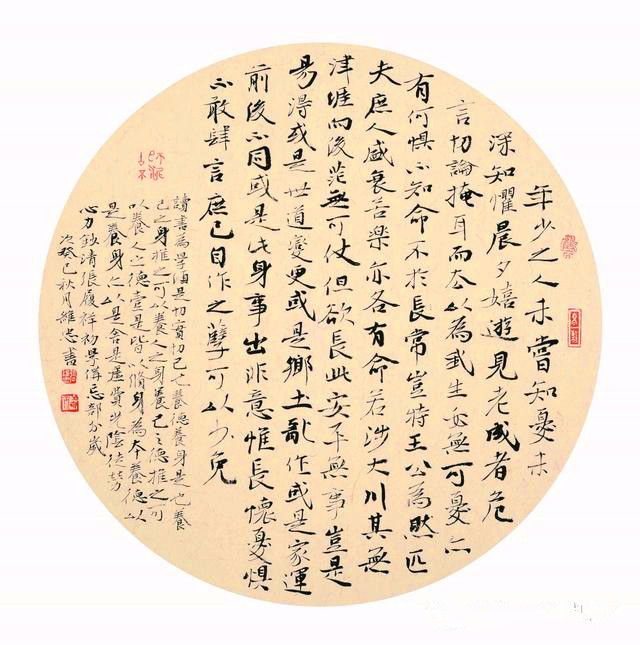 年少之人未嘗知憂未
深知懼晨夕嬉遊見老成者危
言切論掩耳而去以為我生必無可憂亦
有何懼不知命不於長常豈特王公為然匹
夫庶人盛衰苦樂亦各有命若涉大川其無
津涯向後茫無可仗但欲長此安平無事豈是
易得或是世道變更或是鄉土亂作或是家運
前後不同或是此身事出非意惟長懷憂懼
不敢肆言庶已自作之孽可以少免
讀書為學須是切實切己養德養身是也養
己之身推之可以養人之身養己之德推之可
以養人之德壹是皆以脩身為本養德以
是養身以是舍是虛費光陰徒勞
心力鈔清張履祥初學備忘部分歲
次癸巳秋月維忠書